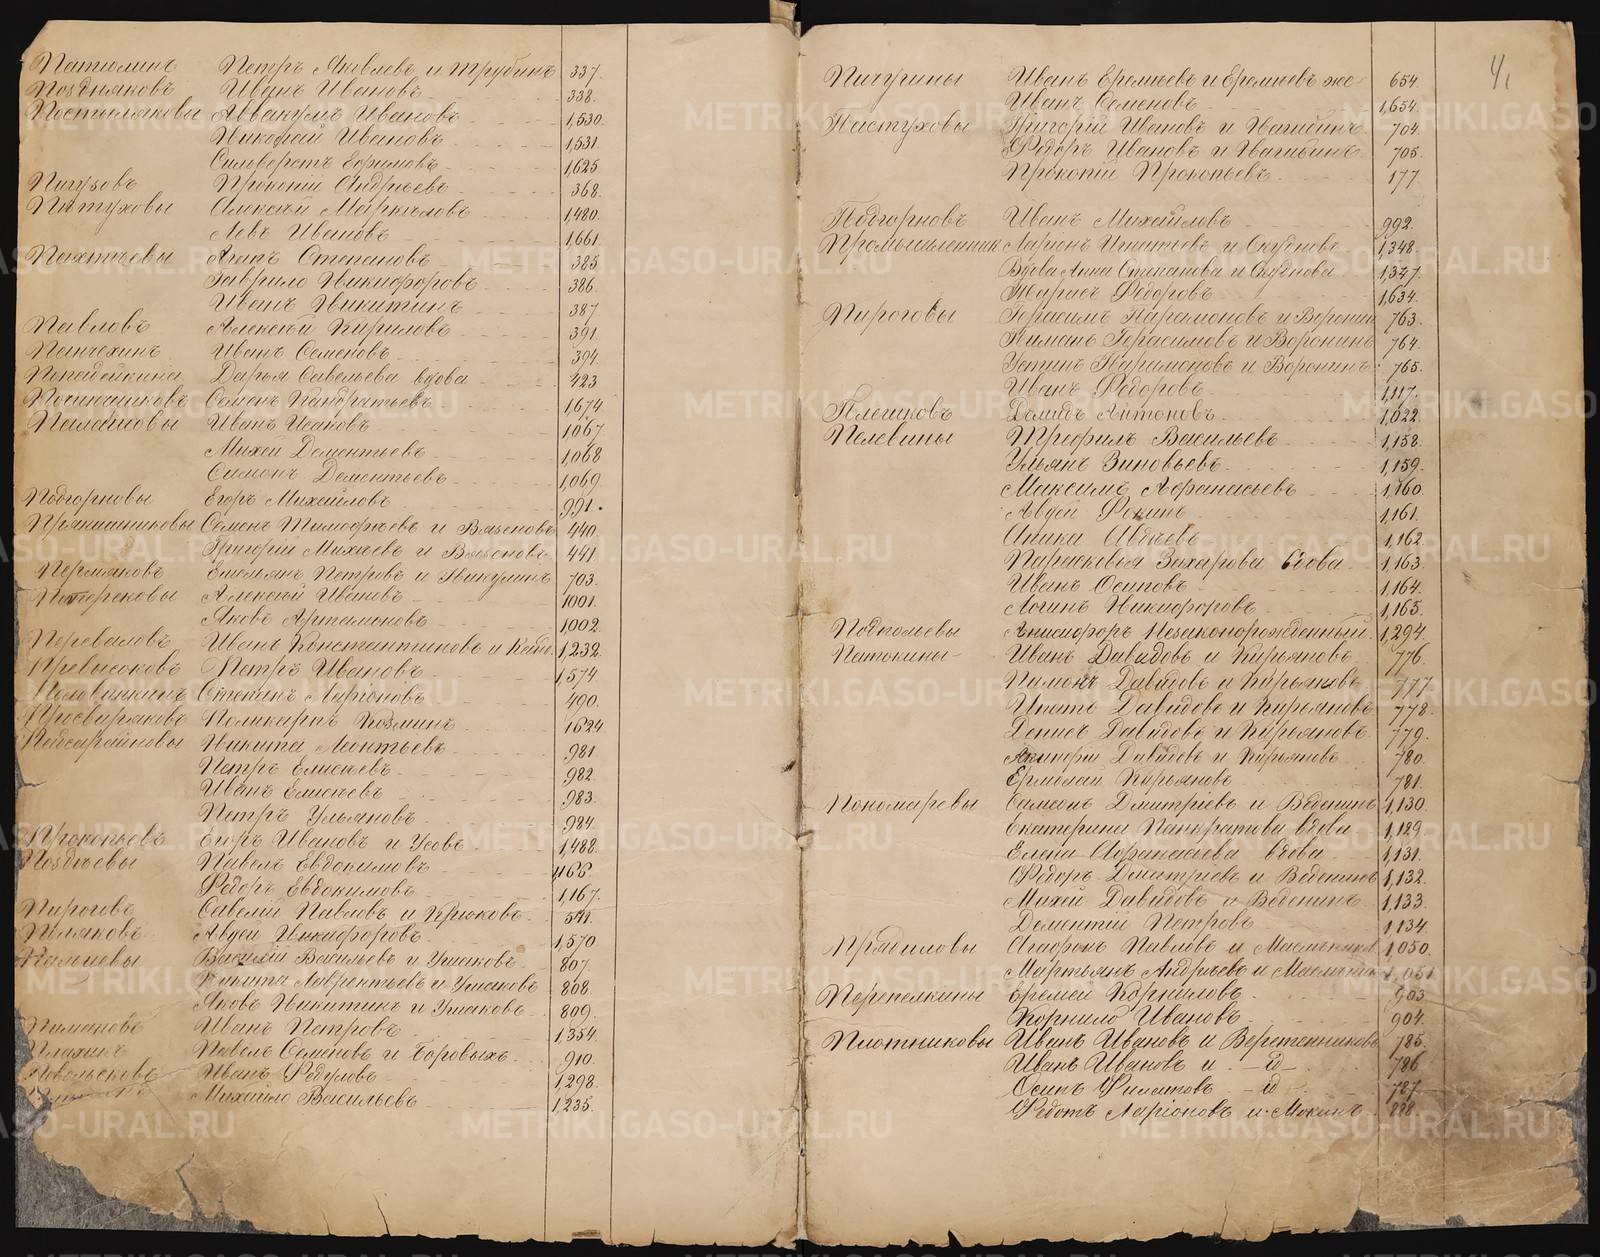 Патюминъ Петръ Яковлевъ и Трубинъ 337.
Поздняковъ Иванъ Ивановъ 338.
Постыляковы Аввакумъ Ивановъ 1,530.
Никофай Ивановъ 1,531.
Сильверстъ Ефимовъ 1,625
Пигузовъ Прокопiй Андрѣевъ 368.
Питуховы Алексѣй Маркѣловъ 1,480.
Левъ Ивановъ 1,661.
Похтѣевы Агипъ Степановъ 385
Гаврило Никифоровъ 386.
Иванъ Никитинъ 387
Павловъ Алексѣй Кириловъ 391.
Панчехинъ Иванъ Семеновъ 394.
Попадейкина Дарья Савельева вдова 423
Семенъ Кандратьевъ 1,674
Палашовы Иванъ Исаковъ 1,067
Михей Дементьевъ 1,068
Симонъ Дементьевъ 1,069.
Подгорновы Егоръ Михайловъ 991.
Прянишниковы Семенъ Тимофѣевъ и Вязеновъ 440.
Григорiй Михѣевъ и Вязеновъ 441
Пермяковъ Емельянъ Петровъ и Никулинъ 703.
Алексѣй Ивановъ 1001.
Яковъ Артамоновъ 1,002
Переваловъ Иванъ Константиновъ и 1,238.
Превысоковъ Петръ Ивановъ 1,574
Половинкинъ Степанъ Ларiоновъ 490.
Просвиряковъ Поликарпъ Козминъ 1624
Никита Леонтьевъ 981
Петръ Елисѣевъ 982
Иванъ Елисѣевъ 983.
Петръ Ульяновъ 984.
Прокопьевъ Егоръ Ивановъ и Усовъ 1,488.
Поздѣевы Павелъ Евдокимовъ 1166.
Федоръ Евдокимовъ 1,167.
Пироговъ Савелiй Павловъ и Крюковъ 541.
Поляковъ Авдей Никифоровъ 1,570
Василiй Васильевъ и Ушаковъ 807.
Никита Лаврентьевъ и Ушаковъ 808.
Яковъ Никитинъ и Ушаковъ 809.
Пимановъ Иванъ Петровъ 1,354.
Плахинъ Павелъ Семеновъ и Боровыхъ 910.
Иванъ Федуловъ 1,298.
Михайло Васильевъ 1,235.
4,
Пичугины Иванъ Еремѣевъ и Еремѣевъ же 654.
Иванъ Семеновъ 1,654.
Пастуховы Григорiй Ивановъ и Нагибинъ 704.
Федоръ Ивановъ и Нагибинъ 705.
Прокопiй Прокопьевъ 177
Подгорновъ Иванъ Михайловъ 992.
Промышленник Ларiонъ Игнатьевъ и Скудновъ 1,348.
Вдова Анна Степанова и Скуднова 1,347.
Тарасъ Федоровъ 1,634.
Пироговы Герасимъ Парамоновъ и Воронин 763.
Пиманъ Герасимовъ и Воронинъ 764.
Устинъ Парамоновъ и Воронинъ 765.
Иванъ Федоровъ 1,117.
Плешковъ Демидъ Антоновъ 1,022.
Пелевины Трифилъ Васильевъ 1,158.
Ульянъ Зиновьевъ 1,159.
Максимъ Афанасьевъ 1,160
Авдей Фокинъ 1,161.
Аника Авдѣевъ 1,162.
Парасковья Захарова вдова 1,163.
Иванъ Осиповъ 1,164.
Логинъ Никифоровъ 1,165.
Подпольевы Анисифоръ Незаконорожденный 1,294.
Патокины Иванъ Давидовъ и Кирьяновъ 776.
Пимонъ Давидовъ и Кирьяновъ 777.
Игнатъ Давидовъ и Кирьяновъ 778.
Денисъ Давидовъ и Кирьяновъ 779.
Акинфiй Давидовъ и Кирьяновъ 780.
Ермолай Кирьяновъ 781.
Пономаревы Самсонъ Дмитрiевъ и Веденинъ 1,130.
Екатерина Панкратова вдова 1,129.
Елена Афанасьева вдова 1,131.
Федоръ Дмитрiевъ и Веденинъ 1,132.
Михей Давидовъ и Веденинъ 1,133.
Дементiй Петровъ 1,134
Прядиловы Агафонъ Павловъ и Масленник 1,050.
Мартьянъ Андрѣевъ и Масленник 1,051
Перепелкины Еремей Корниловъ 903
Корнило Ивановъ 904.
Плотниковы Иванъ Ивановъ и Веретенниковъ 785.
Иванъ Ивановъ и – й – 786
Осипъ Филатовъ – й – 787.
Федотъ Ларiоновъ и Мокинъ 828.
METRIKI.GASO-URAL.RU